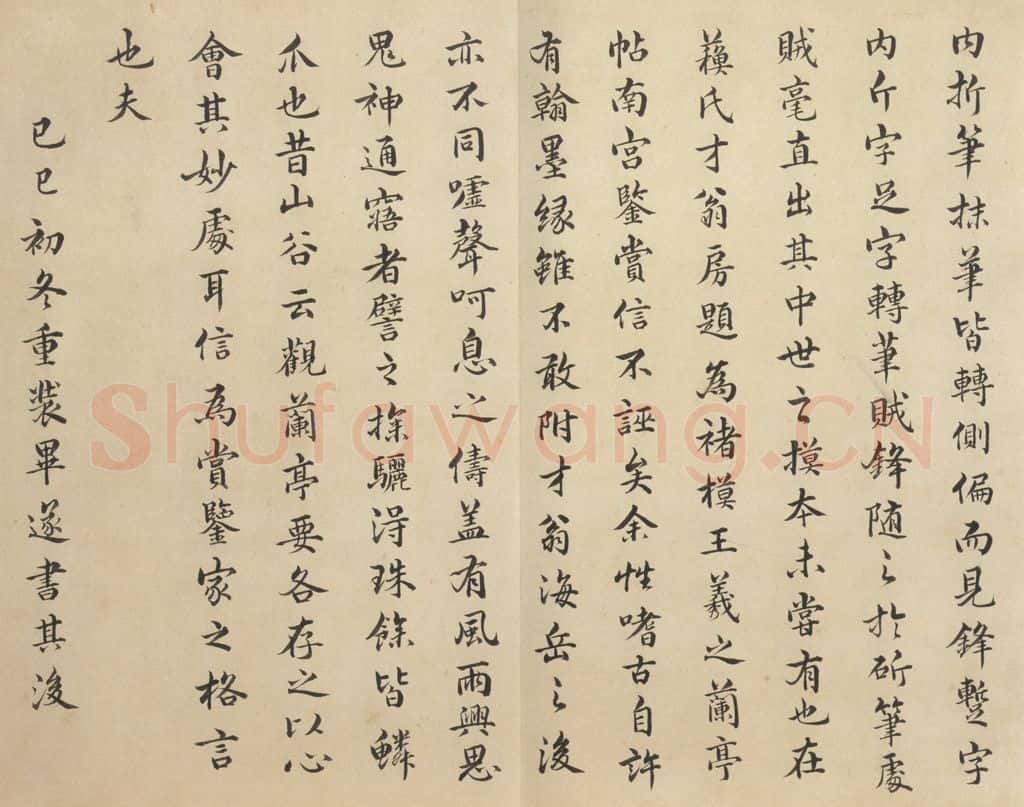 内折筆抹筆皆轉側偏而見鋒蹔字
内斤字足字轉筆賊鋒随之於斫筆處
賊毫直出其中世之摸本未嘗有也在
蘓氏才翁房題為褚摸王羲之蘭亭
帖南宮鑒賞信不誣矣余性嗜古自許
有翰墨縁雖不敢附才翁海岳之後
亦不同嘘聲呵息之儔盖有風雨興思
鬼神通寤者譬之探驪淂珠餘皆鱗
爪也昔山谷云觀蘭亭要各存之以心
會其妙處耳信為賞鑒家之格言
也夫
己巳初冬重裝畢遂書其後
Shufawang.CN